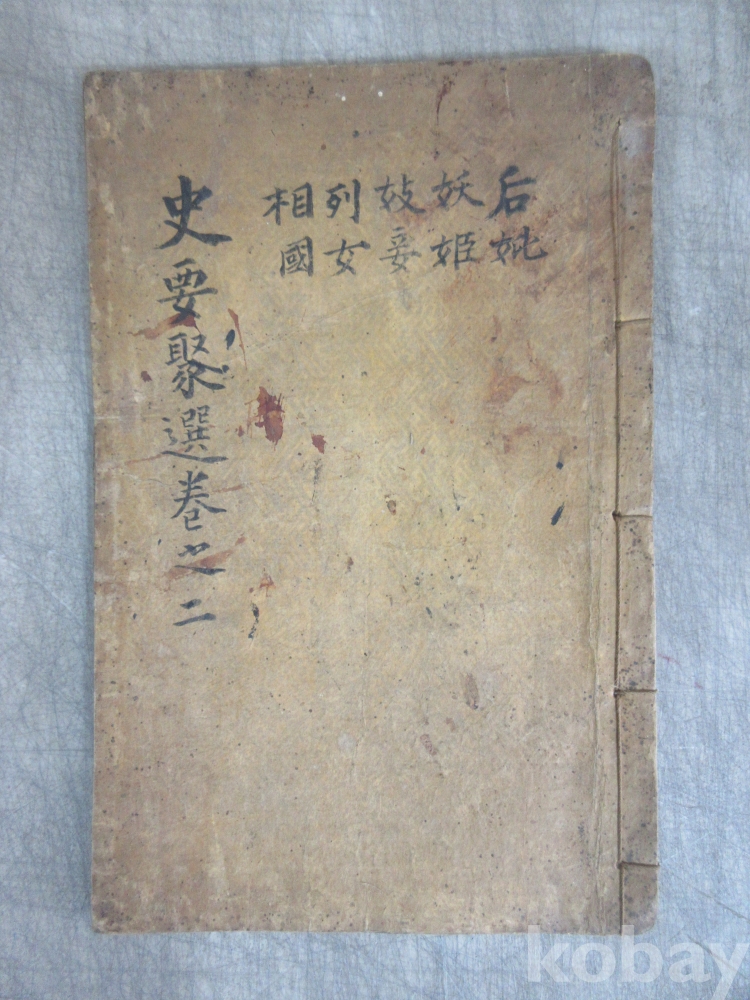 后妃
妖姬
妓妾
列女
相國
史要聚選卷之二
kobay